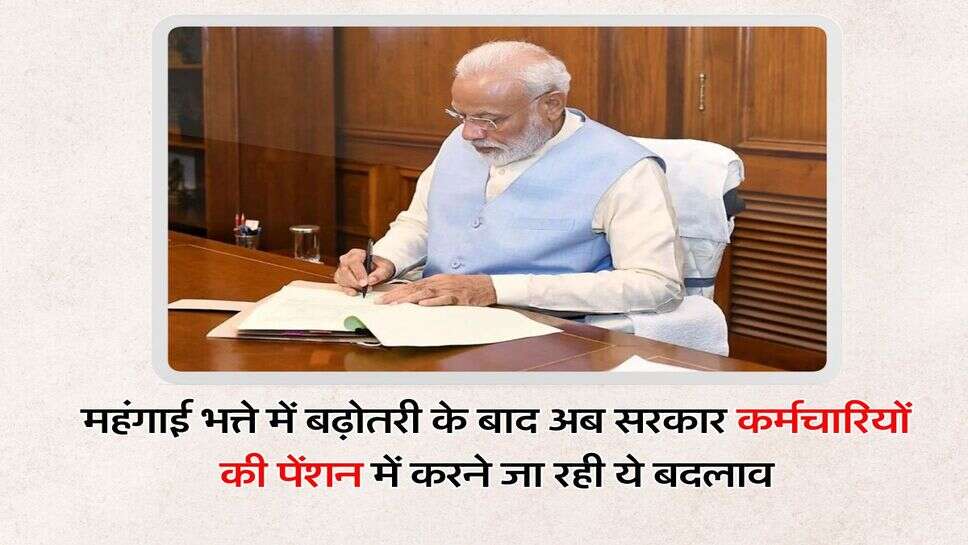 महंगाई भत्ते में बढ़ोतरी के बाद अब सरकार कर्मचारियों
की पेंशन में करने जा रही ये बदलाव